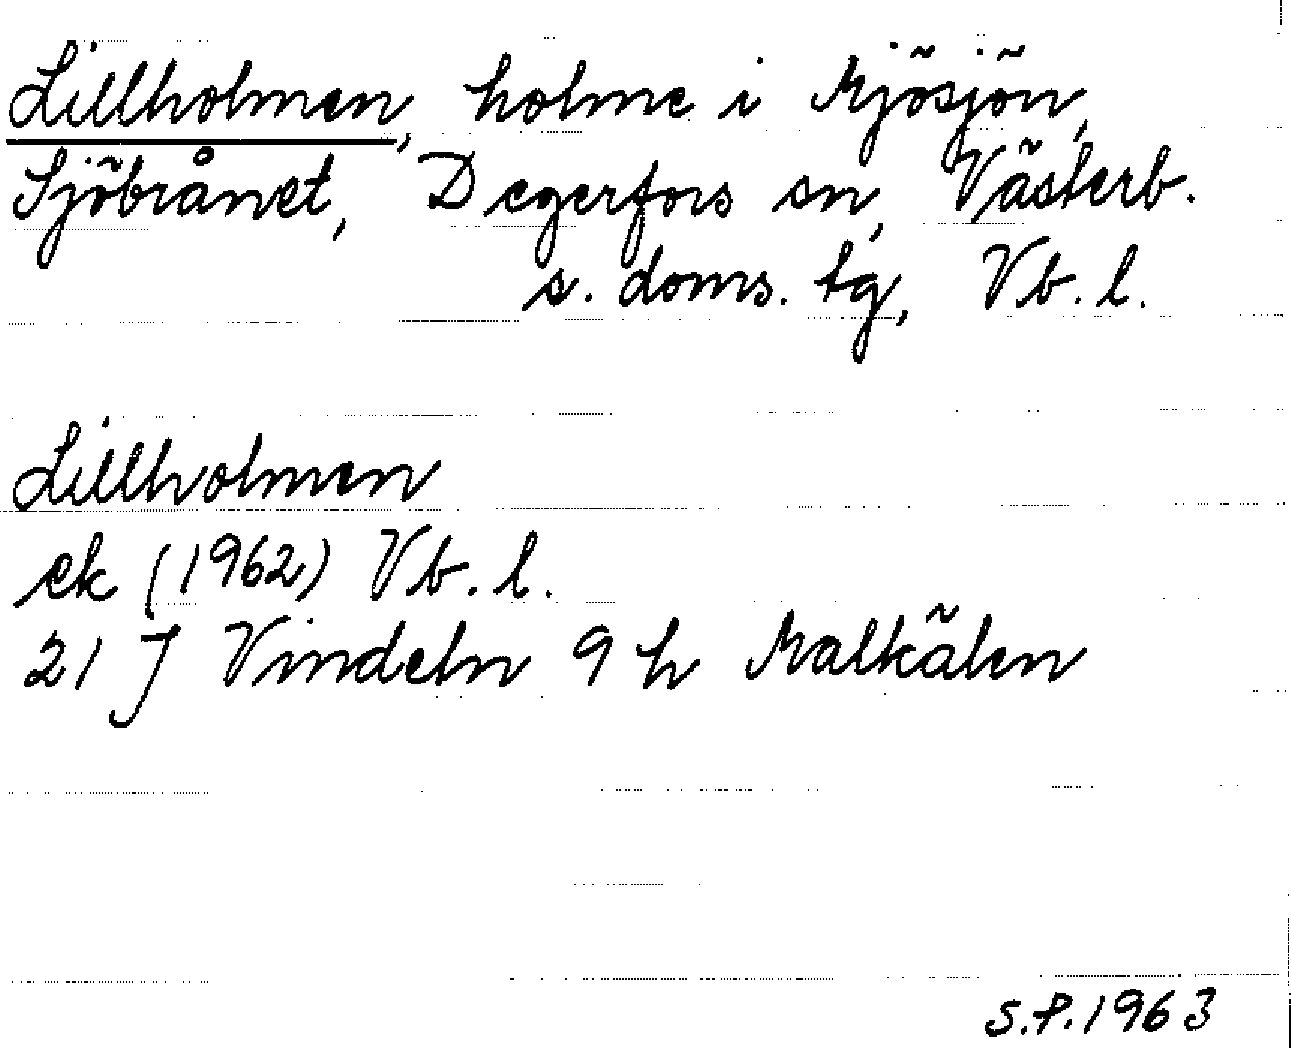 Lillholmen, holme i Mjösjön,
Sjöbrånet, Degerfors sn, Västerb.
s. doms. tg, Vb. l.
Lillholmen
ek (1962) Vb. l.
21 J Vindeln 9 h Malkälen
S.P. 1963